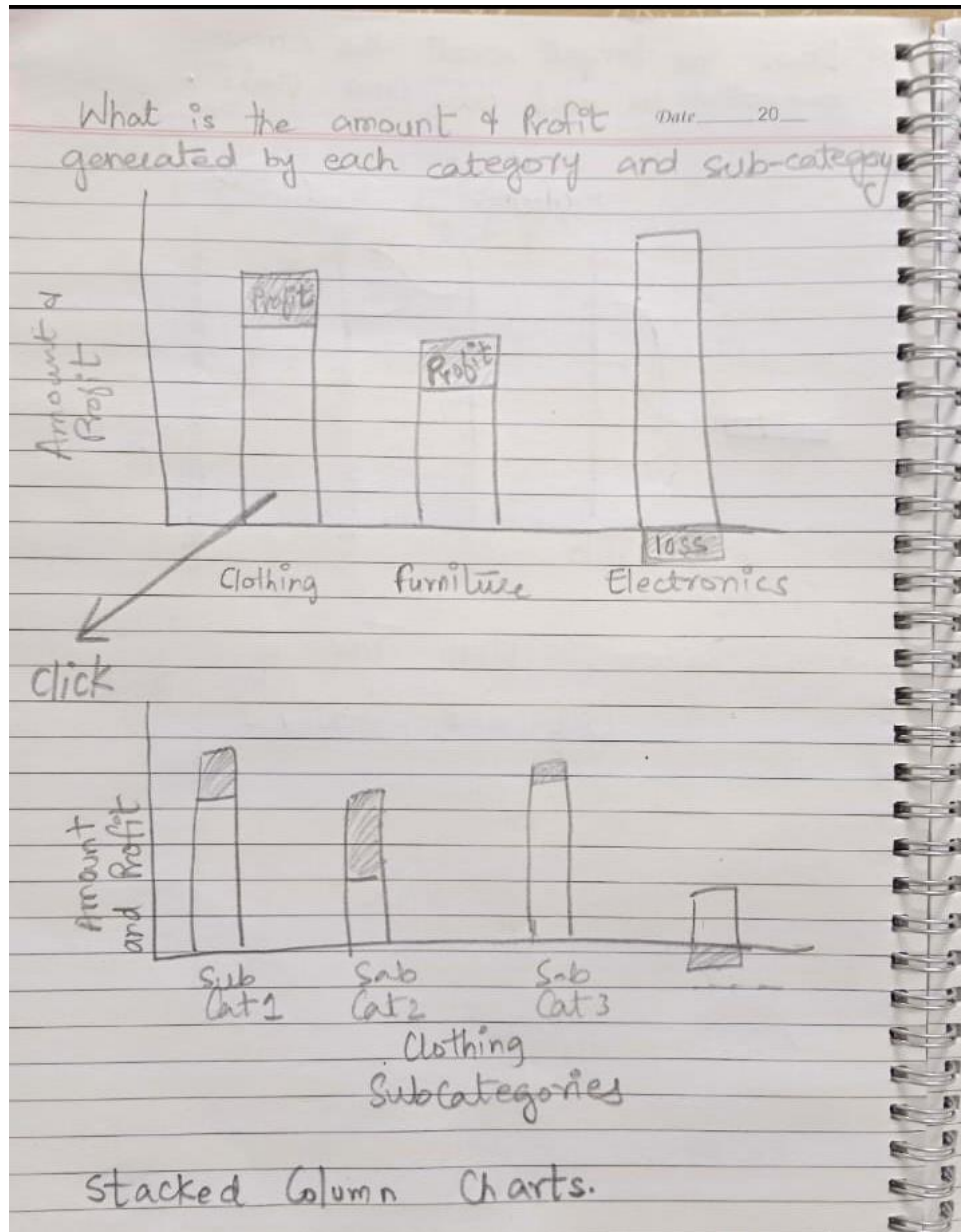 What is the amount & Profit
Date 20
generated by each category and sub-category
Amount &
Profit
Profit
Profit
loss
Clothing
furniture
Electronics
Click
Amount
and Profit
Sub
Cat 1
Sub
Cat 2
Sub
Cat 3
Clothing
Subcategories
Stacked Column Charts.